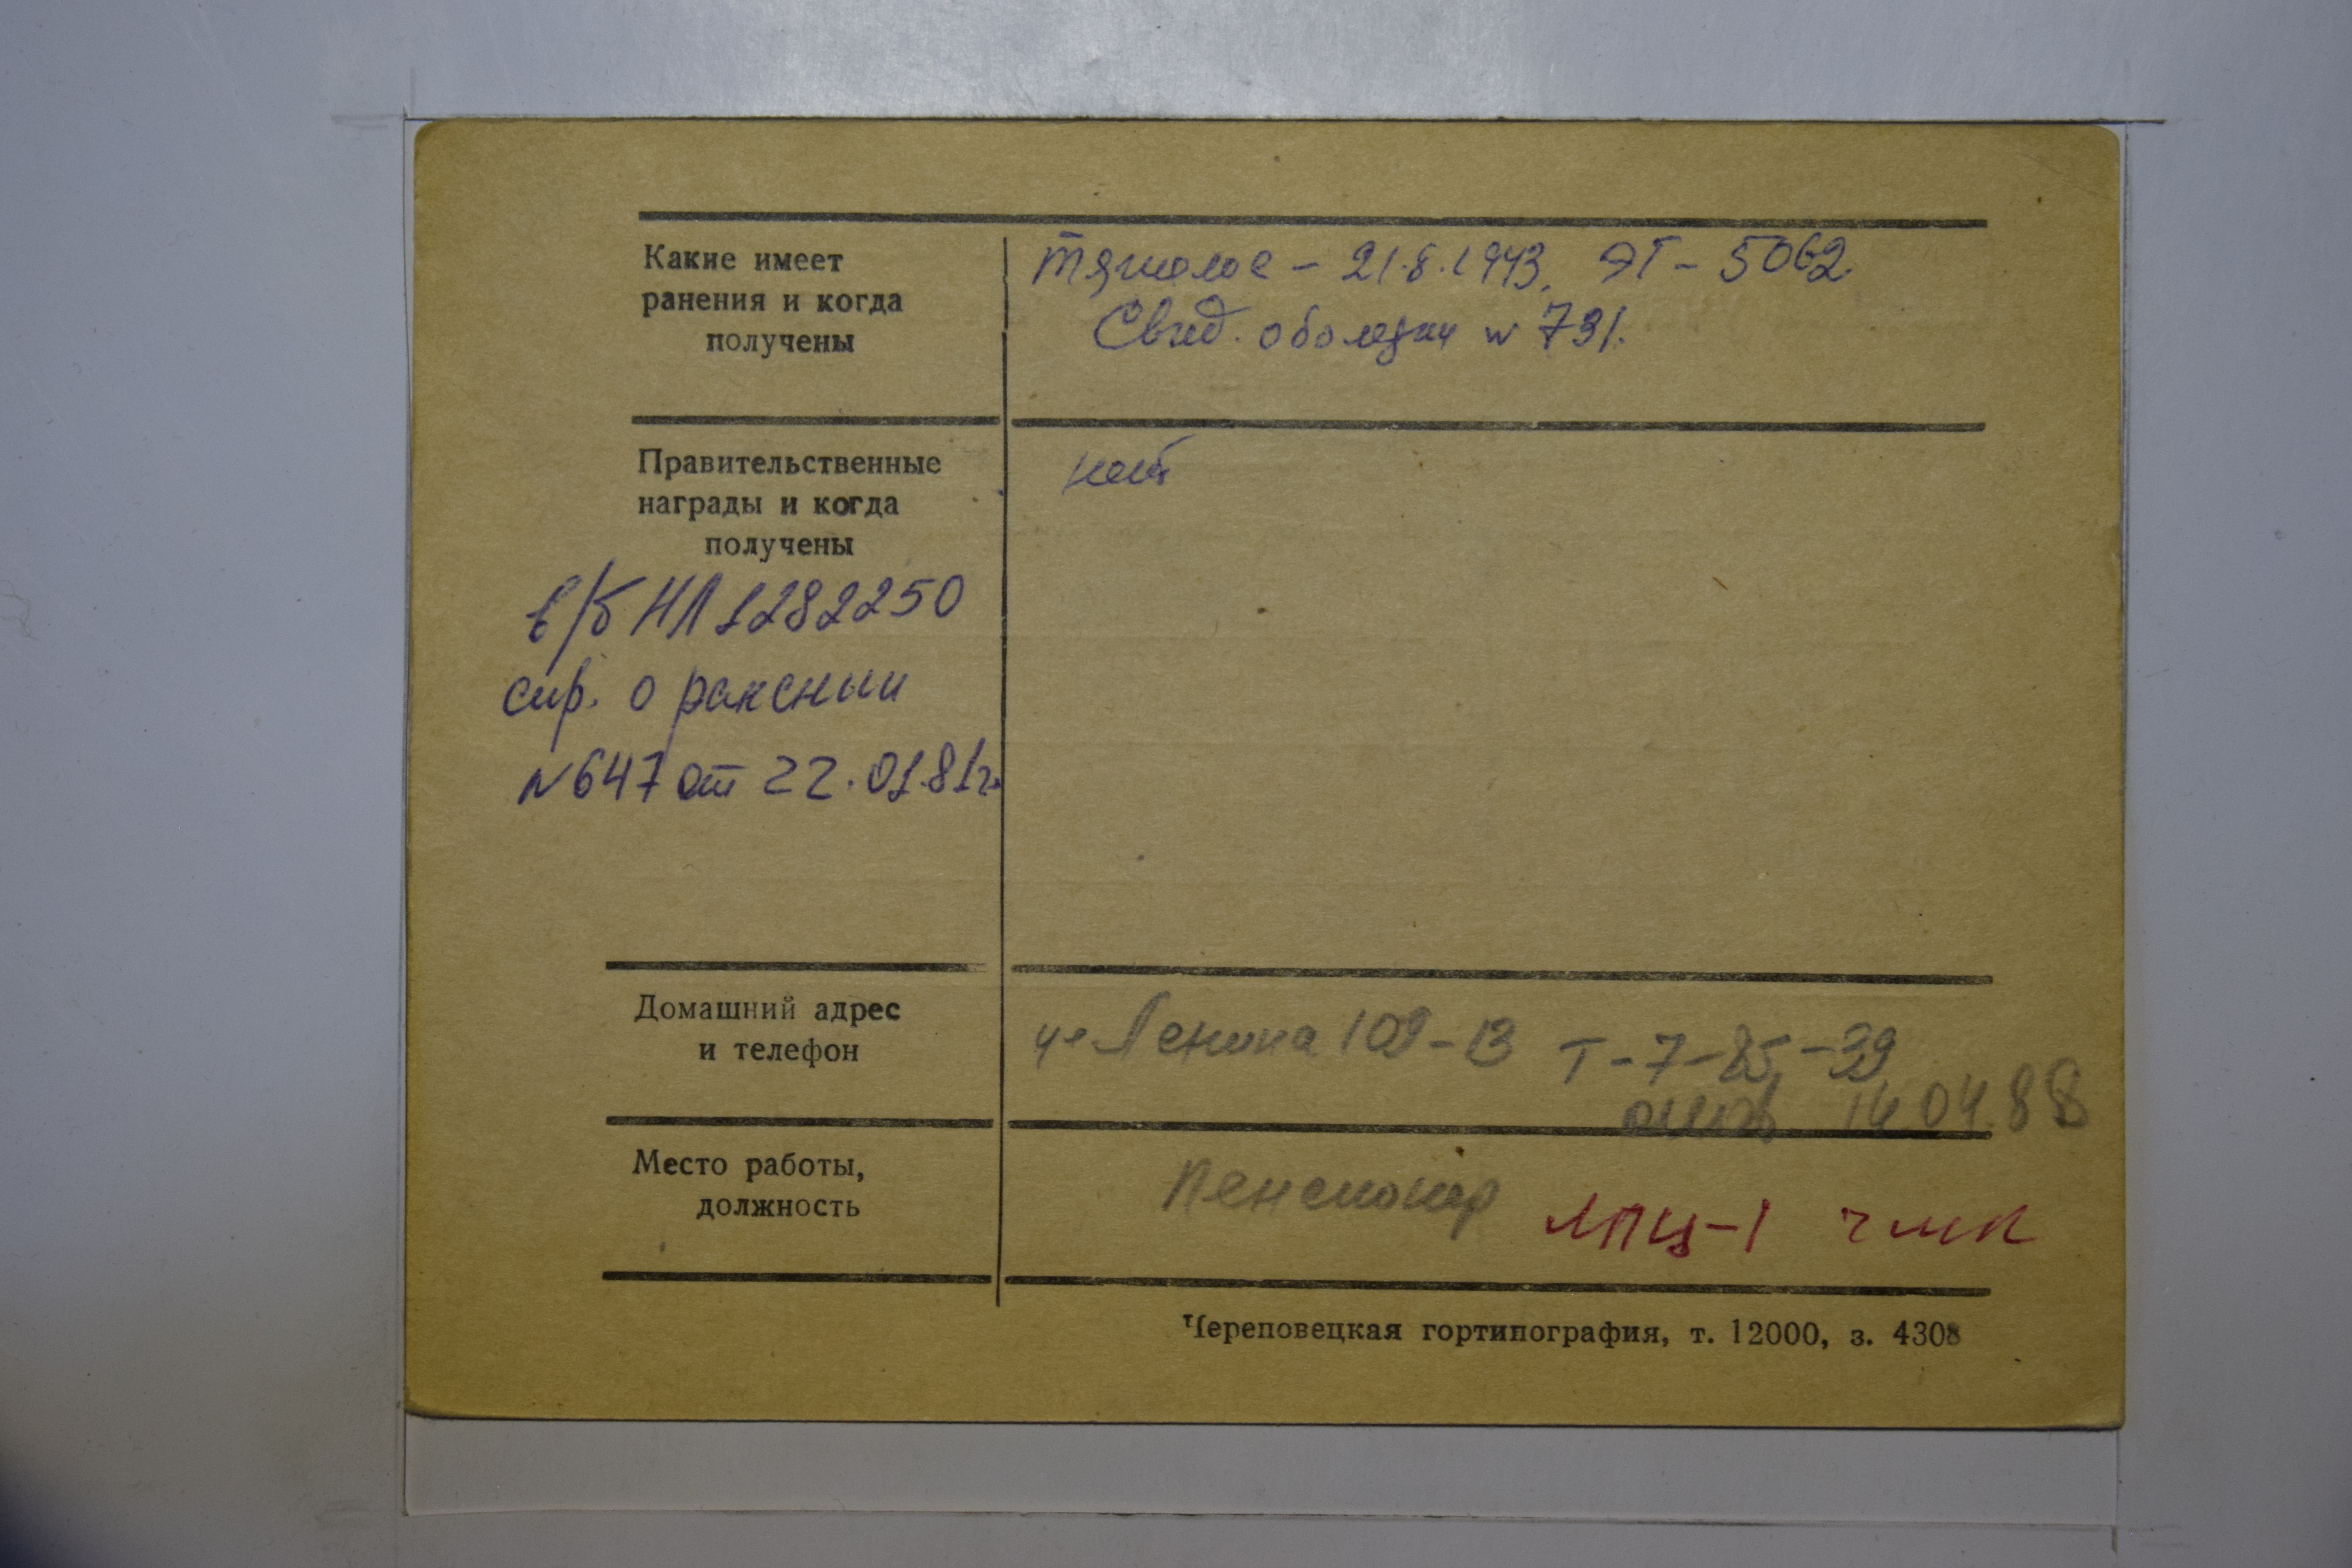 Какие имеет
ранения и когда
получены
тяжолое - 21.8.1943. ЭГ - 5062
Свид. оболезни № 731.
Правительственные
награды и когда
получены
нет
в/б НЛ 1282250
спр. о ранении
№ 647 от 22.01.81г.
Домашний адрес
и телефон
ул Ленина 109-13 Т-7-85-39
14.04.88
Место работы,
должность
Пенсионер ЛПЦ-1 ЧМК
Череповецкая гортипография, т. 12000, з. 4308